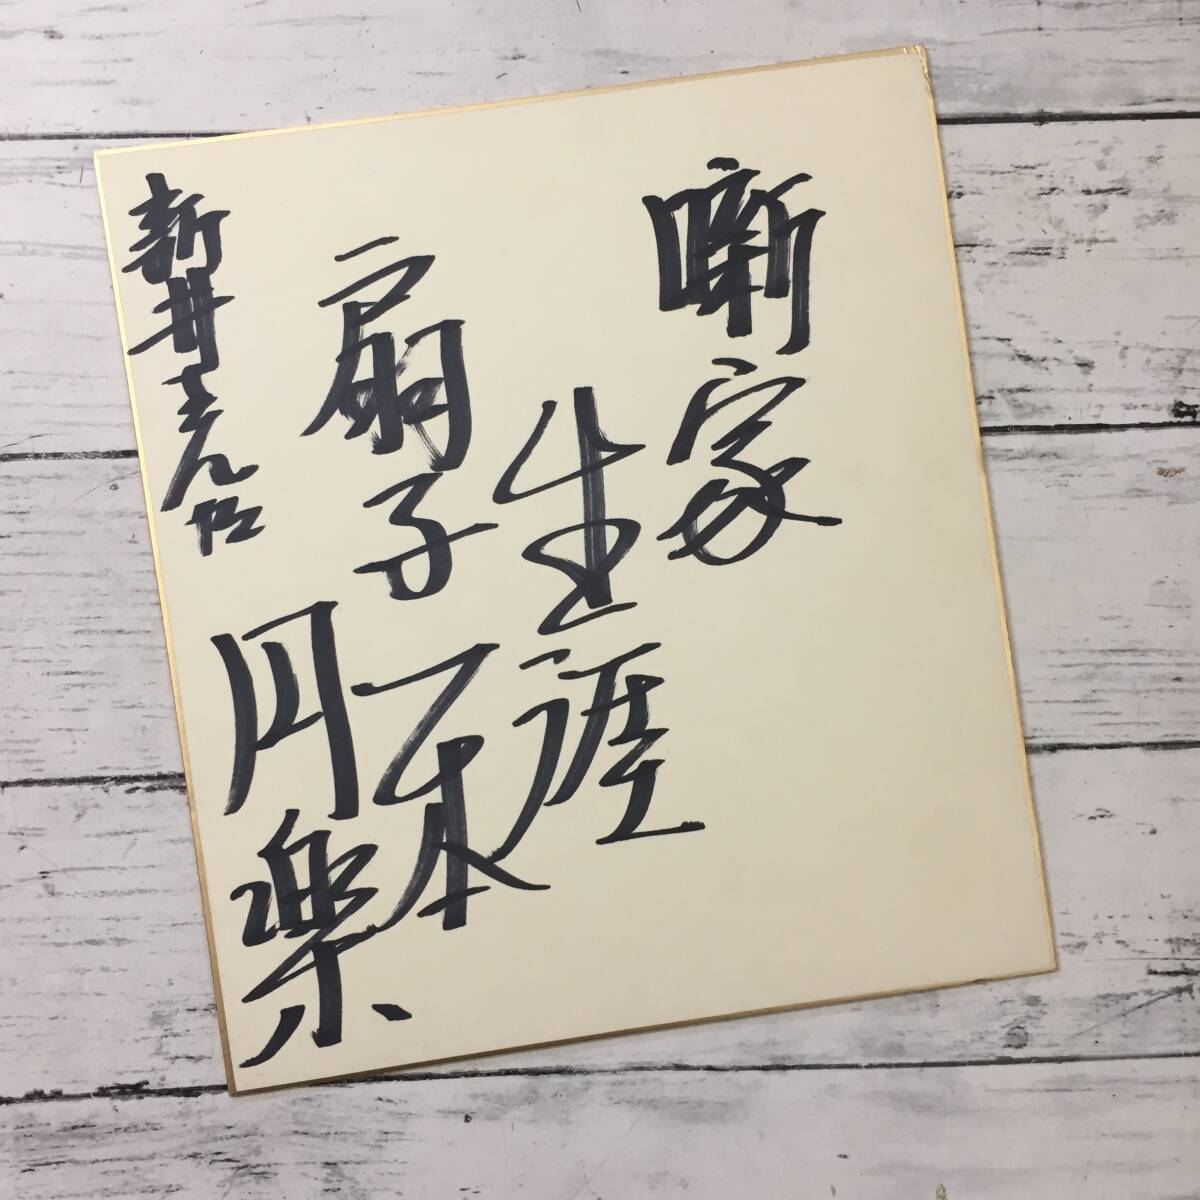 噺家
生涯
扇子一本
円楽
新井さん江